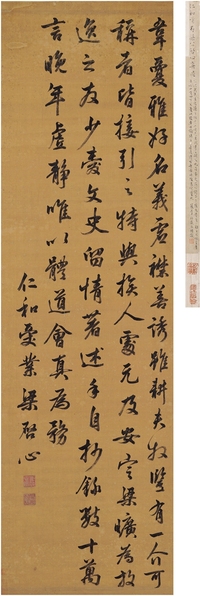 韋夐雅好名義虛襟善誘雖耕夫牧豎有一介可
稱者皆接引之特與族人處元及安定梁曠為放
逸之友少愛文史留情著述手自抄錄數十萬
言晚年虛靜唯以體道會真為務
仁和受業梁啓心